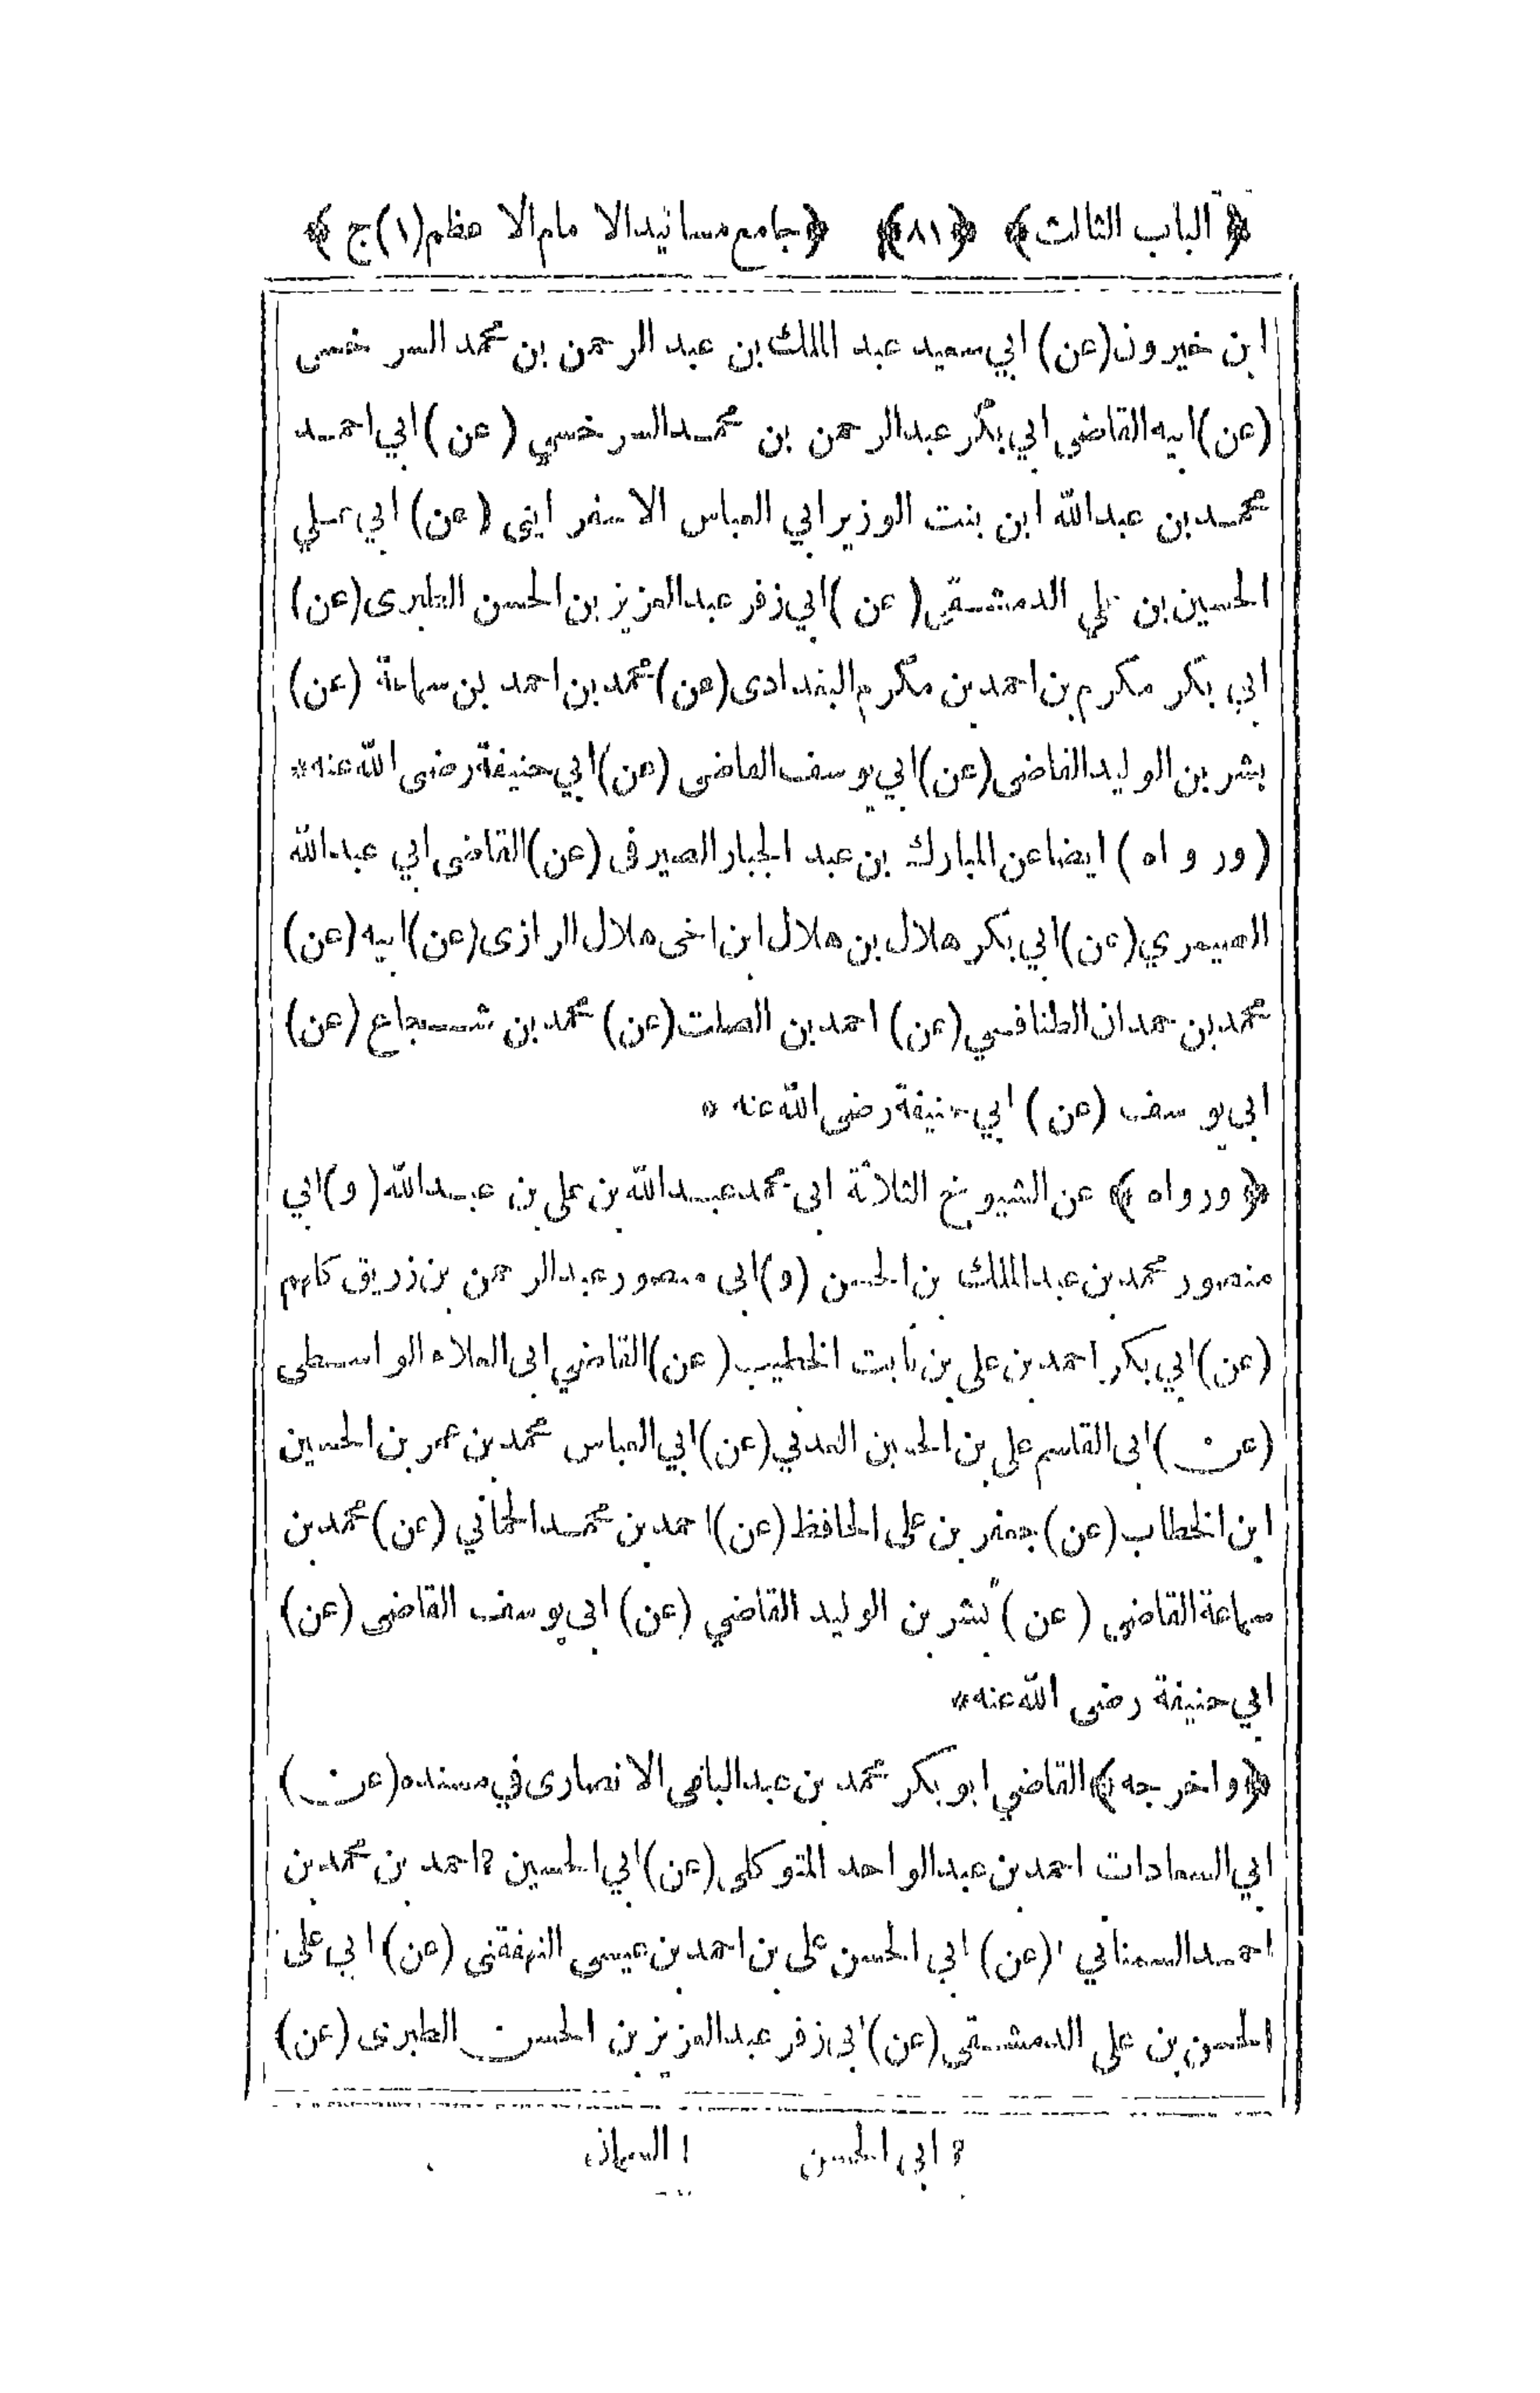 ﴿ الباب الثالث ﴾ ﴿ ٨١ ﴾ ﴿ جامع مسانيد الامام الاعظم (١) ج ﴾
ابن خيرون (عن) ابي سعيد عبد الملك بن عبد الرحمن بن محمد السرخسى
(عن) ابيه القاضى ابي بكر عبد الرحمن بن محمد السرخسي (عن) ابي احمد
محمد بن عبد الله ابن بنت الوزير ابي العباس الاسفرايني (عن) ابي علي
الحسين بن علي الدمشقي (عن) ابي زفر عبد العزيز بن الحسن الطبرى (عن)
ابي بكر مكرم بن احمد بن مكرم البغدادى (عن) محمد بن احمد بن سماعة (عن)
بشر بن الوليد القاضى (عن) ابي يوسف القاضى (عن) ابي حنيفة رضى الله عنه *
(ورواه) ايضا عن المبارك بن عبد الجبار الصيرفى (عن) القاضى ابي عبد الله
الصيمري (عن) ابي بكر هلال بن هلال ابن اخى هلال الرازى (عن) ابيه (عن)
محمد بن حمدان الطنافسي (عن) احمد بن الصلت (عن) محمد بن شجاع (عن)
ابى يوسف (عن) ابي حنيفة رضى الله عنه *
﴿ ورواه ﴾ عن الشيوخ الثلاثة ابى محمد عبد الله بن على بن عبد الله (و) ابي
منصور محمد بن عبد الملك بن الحسن (و) ابى منصور عبد الرحمن بن زريق كلهم
(عن) ابي بكر احمد بن على بن ثابت الخطيب (عن) القاضي ابى العلاء الواسطى
(عن) ابى القاسم على بن الحسين العدني (عن) ابي العباس محمد بن عمر بن الحسين
ابن الخطاب (عن) جعفر بن على الحافظ (عن) احمد بن محمد الحماني (عن) محمد بن
سماعة القاضي (عن) بشر بن الوليد القاضي (عن) ابى يوسف القاضى (عن)
ابي حنيفة رضى الله عنه *
﴿ واخرجه ﴾ القاضي ابو بكر محمد بن عبد الباقى الانصارى في مسنده (عن)
ابي السعادات احمد بن عبد الواحد المتوكلى (عن) ابي الحسين ٢ احمد بن محمد بن
احمد السمناني ١ (عن) ابي الحسن على بن احمد بن عيسى النهفقنى (عن) ابي على
الحسن بن على الدمشقى (عن) ابى زفر عبد العزيز بن الحسن الطبرى (عن)
٢ ابى الحسن ١